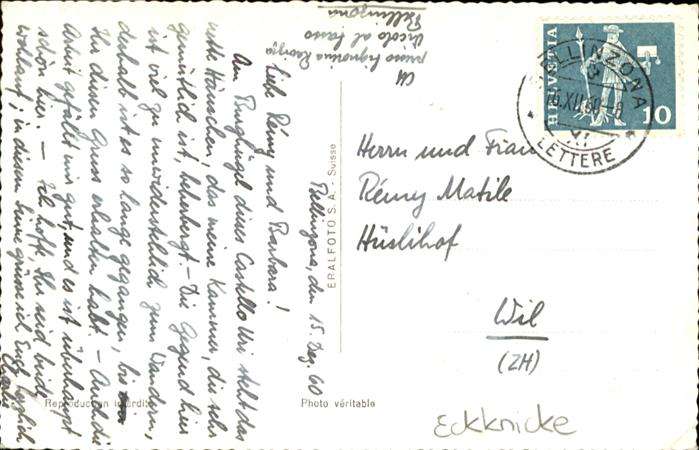 CH
presso Signorina
Vicolo al Sasso
Bellinzona
Bellinzona, den 15. Dez. 60
Liebe Rémy und Barbara!
Am Burghügel dieses Castello Uri steht das
nette Häuschen, das meine Kammer, die sehr
gemütlich ist, beherbergt. – Die Gegend hier
ist viel zu unwiderstehlich zum Wandern,
deshalb ist es so lange gegangen, bis
Ihr diesen Gruss erhalten habt. – Auch die
Arbeit gefällt mir gut, und es ist überhaupt
schön hier. – Ich hoffe, Ihr seid beide
wohlauf; in diesem Sinne grüsse ich Euch herzlich
HELVETIA
10
BELLINZONA
LETTERE
Herrn und Frau
Rémy Matile
Hüslihof
Wil
(ZH)
ERALFOTO S.A. - Suisse
Reproduction interdite
Photo véritable
Eckknicke